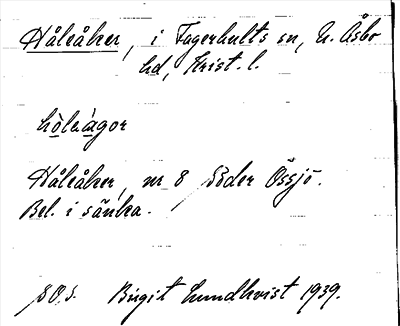 Håleåker, i Fagerhults sn, N. Åsbo
hd, Krist. l.
hòleàgor
Håleåker, nr 8 Söder Össjö.
Bel. i sänka.
S.O.S. Birgit Lundkvist 1939.